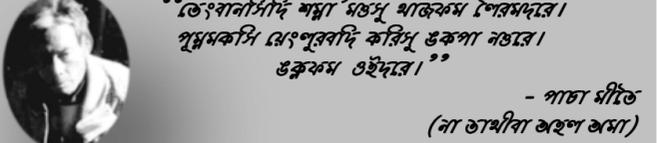 “তেংবানসিদি শম্না মতসু থাজকম লৈরমদরে।
পূম্নমকসি য়েংলুরবদি করিসু ঙকপা নত্তরে।
ঙক্লকম ওইদরে।”
- পাচা মীতৈ
(না তাথীবা অহল অমা)